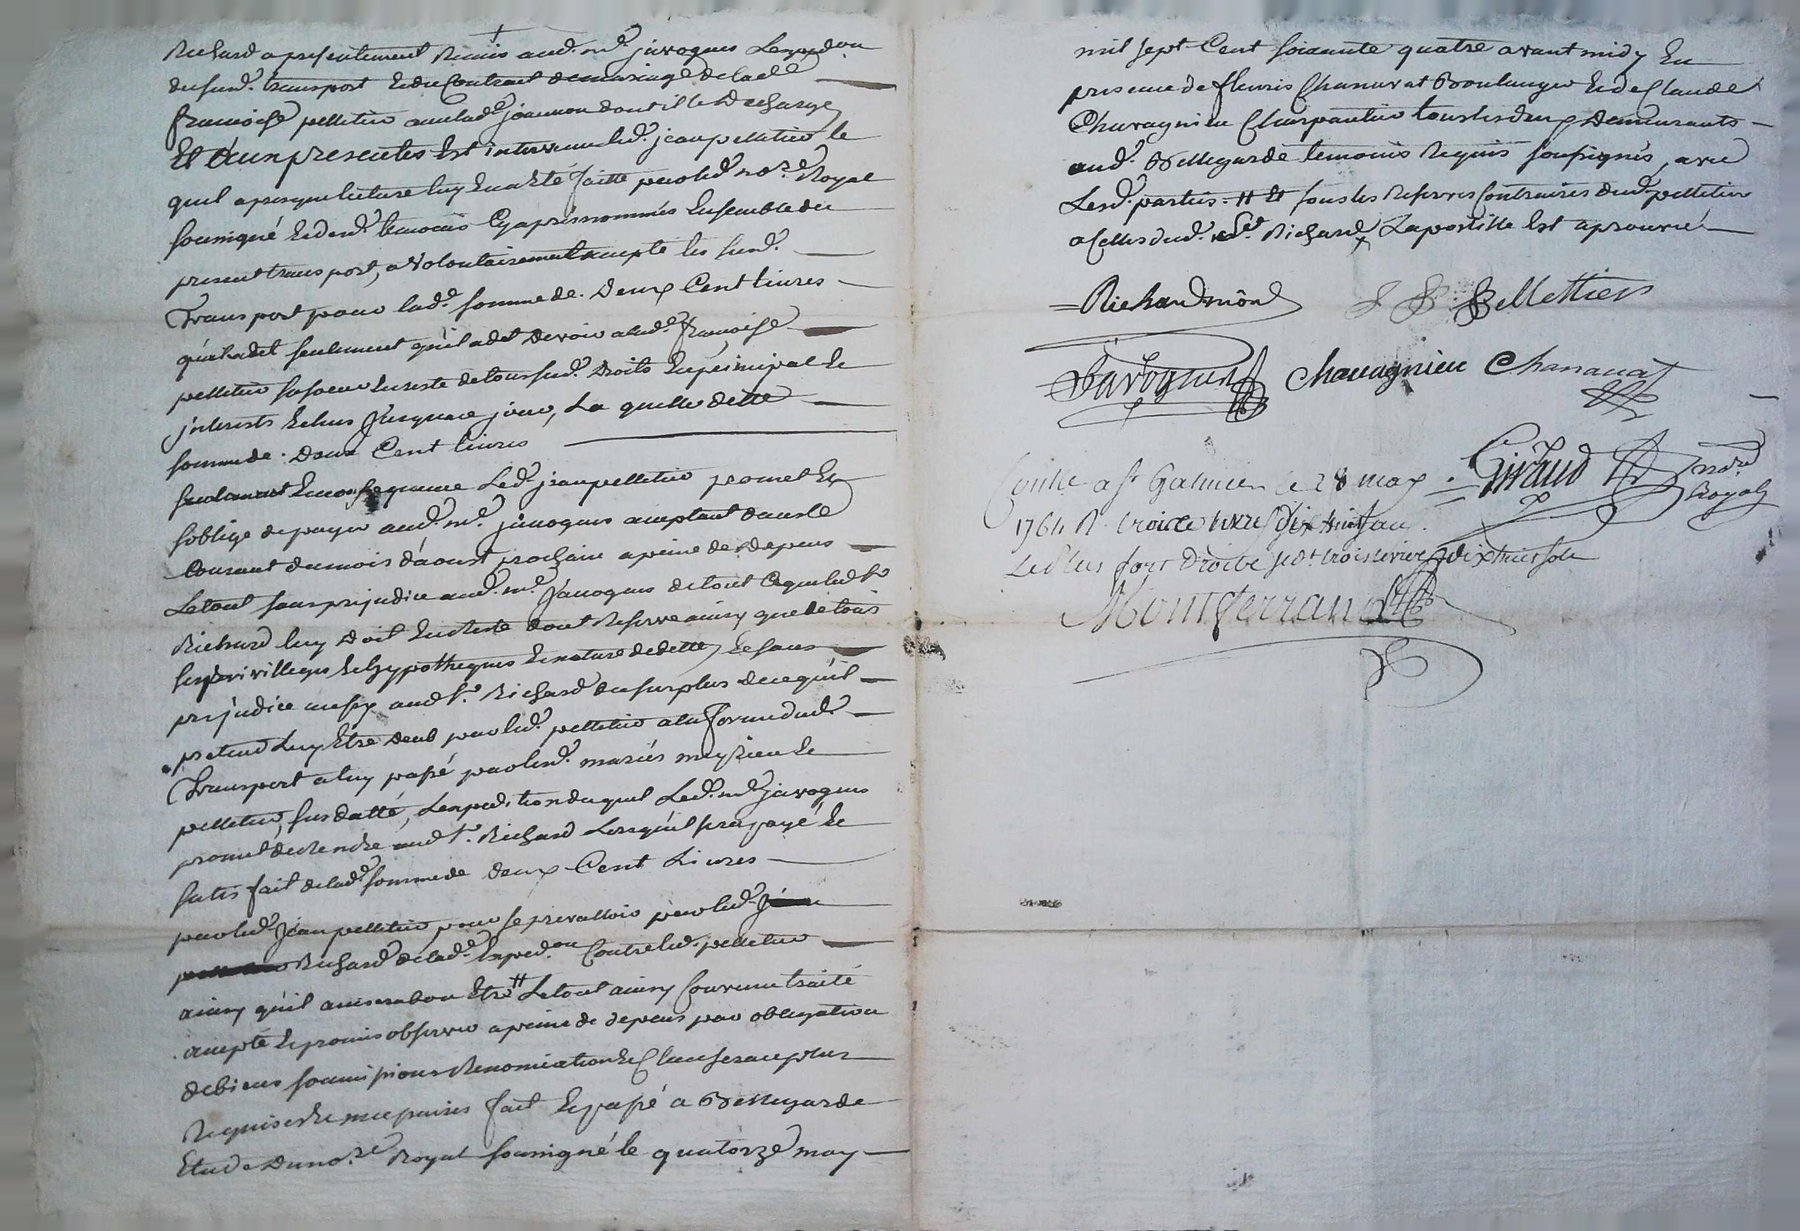 Richard a presentement Remis aud. me. javogues Lexpedon
dususd. transport Et du Contrat de mariage de lade.
francoise pelletier avec led. joannon dont il les Decharge
Et a un presentes Est intervenu led. jean pelletier le
quel apres que lecture luy En a Eté faitte par led. nore. Royal
soussigné Et desd. temoins Cy apres nommés Ensemble du
present transport, a volontairement accepté les susd.
Transport pour lade. somme de Deux Cent livres
qu'il a dit seulement qu'il a dit Devoir a lade. francoise
pelletier sa soeur En reste de tous sesd. Droits En principal Et
interests Echus jusqua ce jour, La quelle dette
somme de Deux Cent livres
seulement En consequence Led. jean pelletier promet Et
soblige de payer aud. me. javogues acceptant dans le
Courant du mois d'aoust prochain a peine de depens
Le tout sans prejudice aud. me. javogues de tout Ce que led. sr.
Richard luy Doit En Reste dont Reserve ainsy que de tous
ses privilleges Et hypotheques Et nature de dette, Et sans
prejudice aussy aud. sr. Richard du surplus de ce qu'il
pretend Luy Etre Deub par led. pelletier a la forme dud.
Transport a luy passé par lesd. mariés meyzieu Et
pelletier, susdatté, Lexpedition duquel Led. me. javogues
promet de rendre aud. sr. Richard Lorsquil sera payé Et
satisfait de lade. somme de deux Cent Livres
par led. jean pelletier pour se prevalloir par led.
Richard de lade. Expedon. Contre led. pelletier
ainsy qu'il avisera bon Etre # Le tout ainsy Convenu traité
accepté Et promis observer a peine de depens par obligation
de biens soumissions Renonciations Et Clauses au plus
Requises Et necessaires fait Et passé a Bellegarde
Etude Du nore. Royal soussigné le quatorze may
mil sept Cent soixante quatre avant midy En
presence de fleuris Chanavat Boulanger Et de Claude
Chavagnieu Charpentier tous les deux Demeurants
aud. Bellegarde temoins Requis soussignés, avec
Lesd. parties. # Et sous les Reserves Contraires dud. pelletier
a Celles dud. sr. Richard Lapostille Est aprouvée
Richardmônd J B Pellettier
Javogues Chavagnieu Chanavat
Giraud nore.
Royal
Conlle a St Galmier le 28 may
1764 R. trois livres dix huit sau.
Le plus fort Droit Red. trois livres dix huit sols
Montferrand